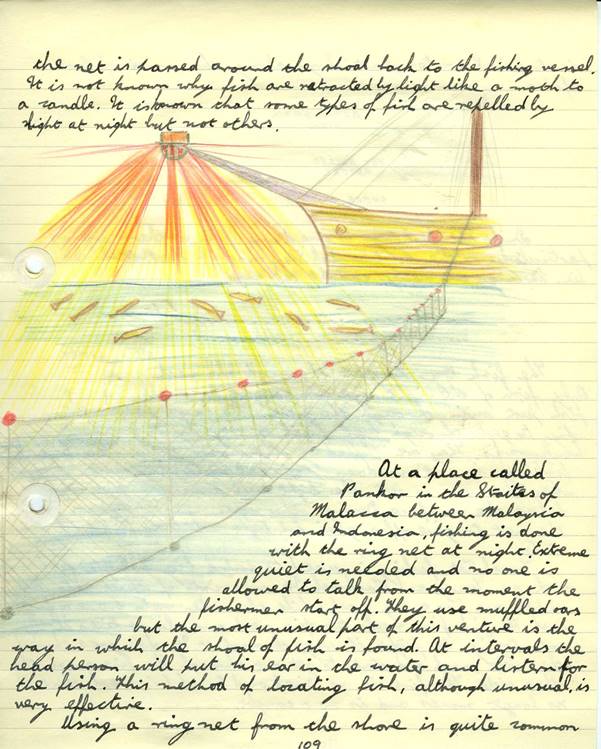 the net is passed around the shoal back to the fishing vessel.
It is not known why fish are ratracted by light like a moth to
a candle. It is known that some types of fish are repelled by
light at night but not others.
At a place called
Pankor in the Staites of
Malacca between Malaysia
and Indonesia, fishing is done
with the ring net at night. Extreme
quiet is needed and no one is
allowed to talk from the moment the
fishermen start off. They use muffled oars
but the most unusual part of this venture is the
way in which the shoal of fish is found. At intervals the
head person will put his ear in the water and listern for
the fish. This method of locating fish, although unusual, is
very effective.
Using a ring net from the shore is quite common
109